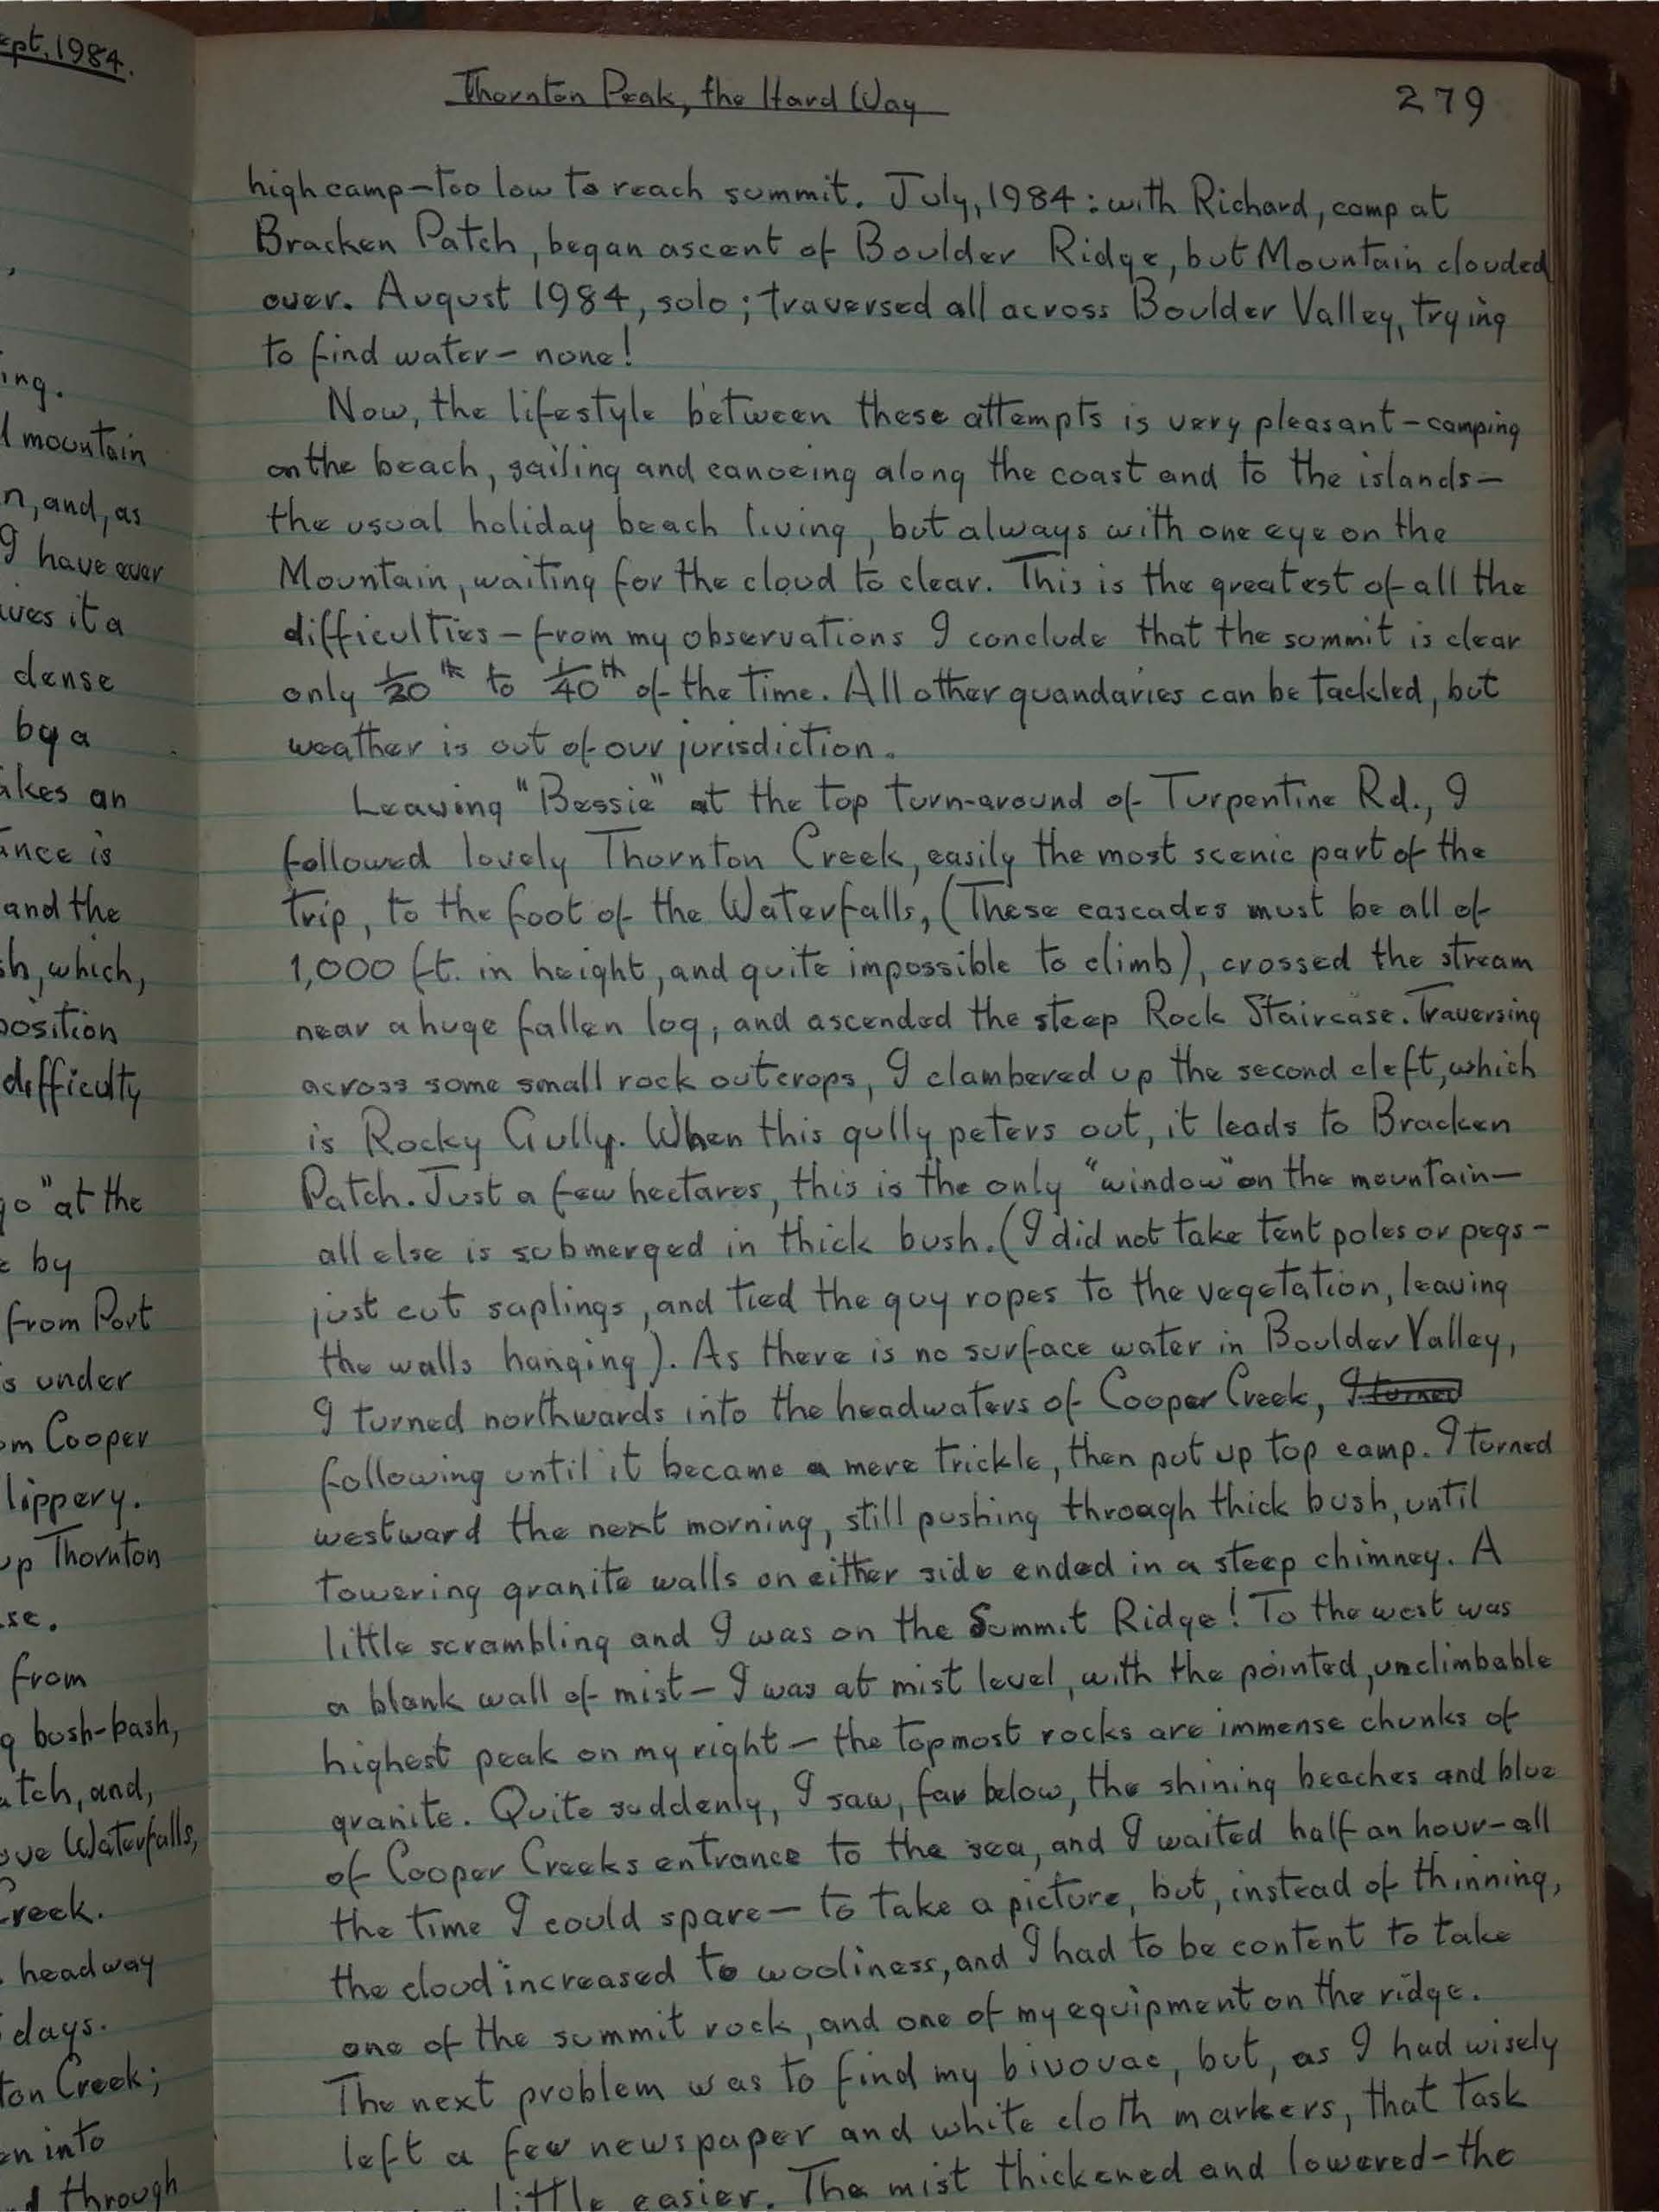 ept, 1984.
,
ing.
mountain
n, and, as
I have ever
ives it a
dense
by a
akes an
ance is
and the
sh, which,
position
difficulty
go" at the
by
from Port
s under
om Cooper
lippery.
up Thornton
se.
from
g bush-bash,
atch, and,
ove Waterfalls,
Creek.
headway
days.
ton Creek;
en into
through
Thornton Peak, the Hard Way
279
high camp-too low to reach summit. July, 1984: with Richard, camp at
Bracken Patch, began ascent of Boulder Ridge, but Mountain clouded
over. August 1984, solo; traversed all across Boulder Valley, trying
to find water- none!
Now, the lifestyle between these attempts is very pleasant-camping
on the beach, sailing and canoeing along the coast and to the islands-
the usual holiday beach living, but always with one eye on the
Mountain, waiting for the cloud to clear. This is the greatest of all the
difficulties-from my observations I conclude that the summit is clear
only 1/20th to 1/40th of the time. All other quandaries can be tackled, but
weather is out of our jurisdiction.
Leaving "Bessie" at the top turn-around of Turpentine Rd., I
followed lovely Thornton Creek, easily the most scenic part of the
trip, to the foot of the Waterfalls, (These cascades must be all of
1,000 ft. in height, and quite impossible to climb), crossed the stream
near a huge fallen log, and ascended the steep Rock Staircase. Traversing
across some small rock outcrops, I clambered up the second cleft, which
is Rocky Gully. When this gully peters out, it leads to Bracken
Patch. Just a few hectares, this is the only "window" on the mountain-
all else is submerged in thick bush. (I did not take tent poles or pegs-
just cut saplings, and tied the guy ropes to the vegetation, leaving
the walls hanging). As there is no surface water in Boulder Valley,
I turned northwards into the headwaters of Cooper Creek, I turned
following until it became a mere trickle, then put up top camp. I turned
westward the next morning, still pushing through thick bush, until
towering granite walls on either side ended in a steep chimney. A
little scrambling and I was on the Summit Ridge! To the west was
a blank wall of mist- I was at mist level, with the pointed, unclimbable
highest peak on my right- the topmost rocks are immense chunks of
granite. Quite suddenly, I saw, far below, the shining beaches and blue
of Cooper Creeks entrance to the sea, and I waited half an hour-all
the time I could spare- to take a picture, but, instead of thinning,
the cloud increased to wooliness, and I had to be content to take
one of the summit rock, and one of my equipment on the ridge.
The next problem was to find my bivouac, but, as I had wisely
left a few newspaper and white cloth markers, that task
little easier. The mist thickened and lowered-the